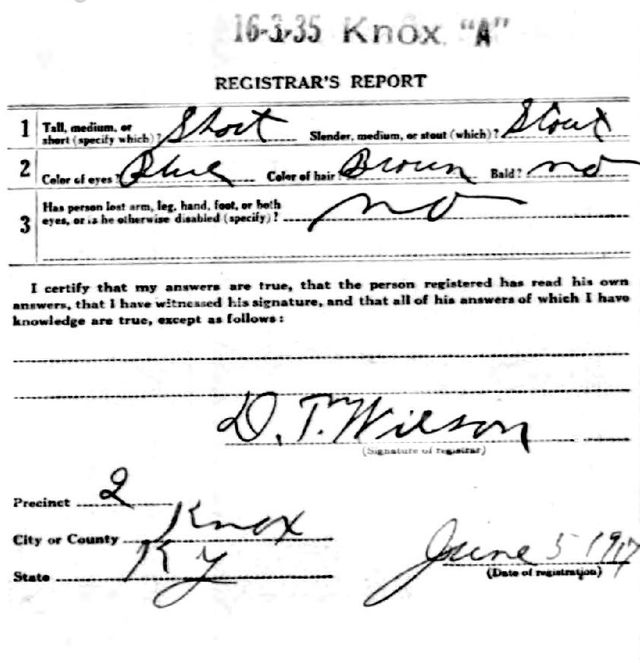 16-3-35 Knox "A"
REGISTRAR'S REPORT
1 Tall, medium, or short (specify which)? Short Slender, medium, or stout (which)? Stout
2 Color of eyes? Blue Color of hair? Brown Bald? no
3 Has person lost arm, leg, hand, foot, or both eyes, or is he otherwise disabled (specify)? no
I certify that my answers are true, that the person registered has read his own
answers, that I have witnessed his signature, and that all of his answers of which I have
knowledge are true, except as follows:
D. T. Wilson
(Signature of registrar)
Precinct 2
City or County Knox
State Ky
June 5 1917
(Date of registration)